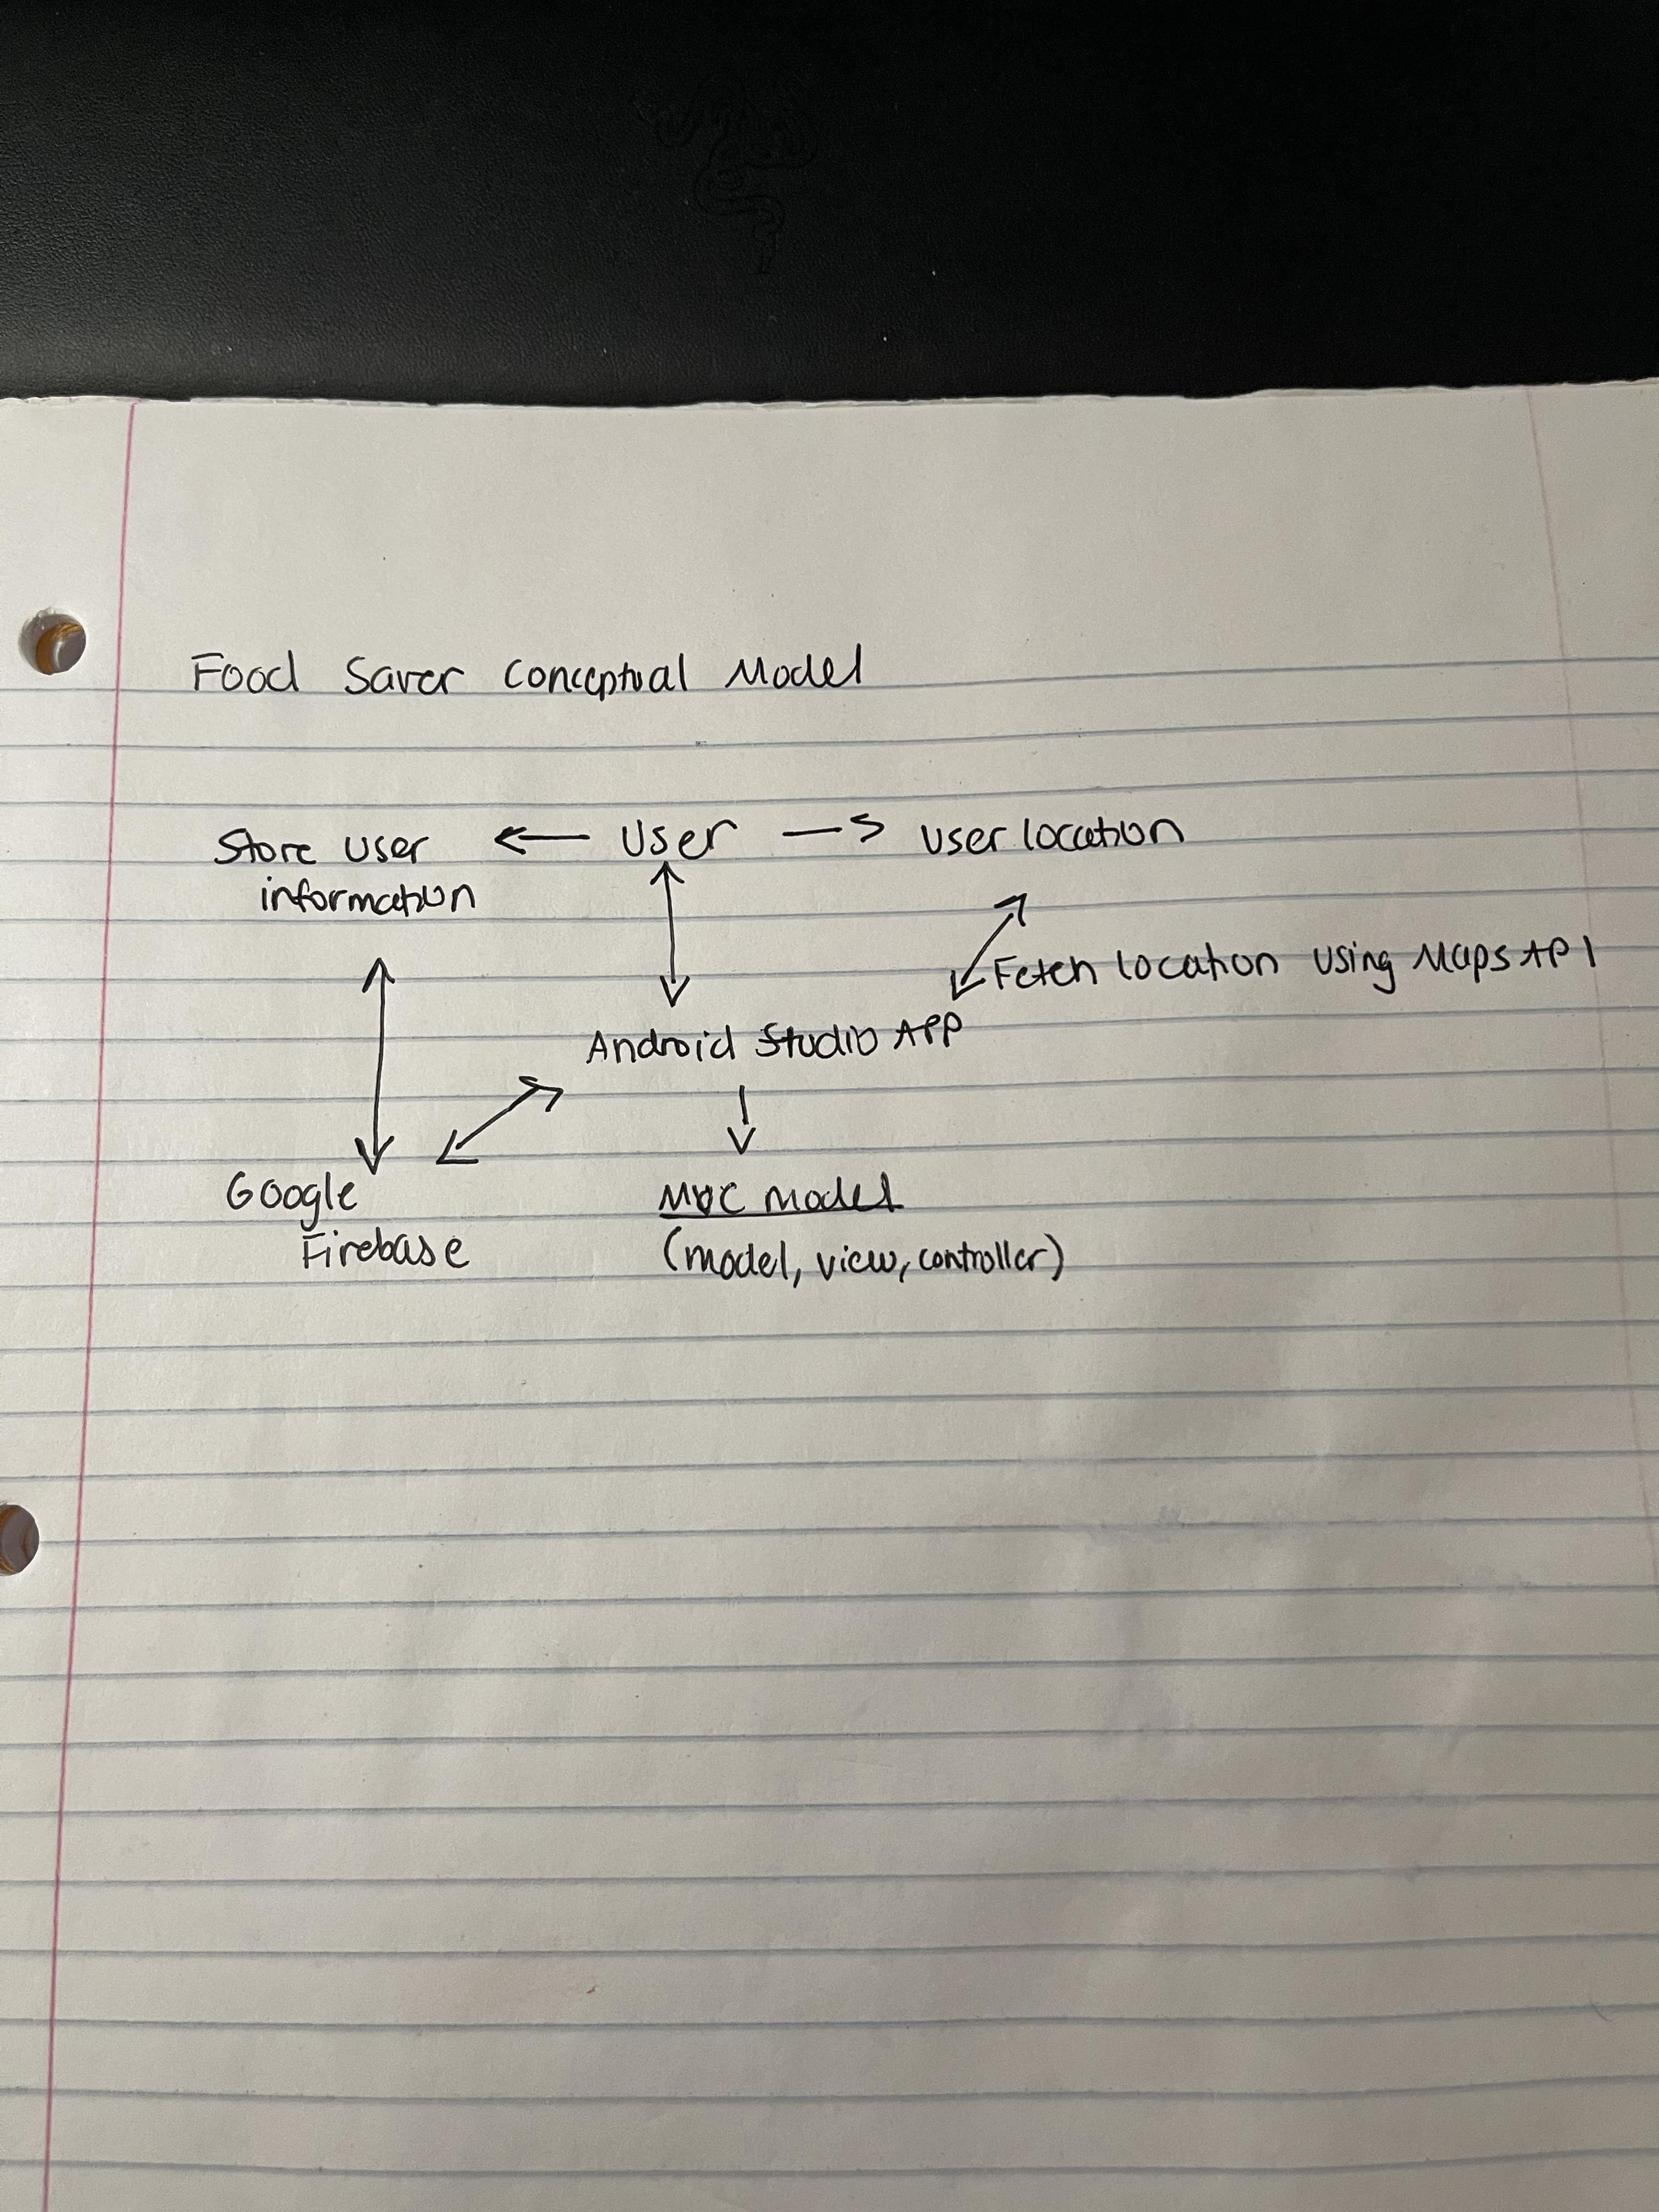 Food Saver Conceptual Model
Store User ← User → User location
information
Fetch location using Maps API
Android Studio APP
Google
Firebase
MVC Model
(model, view, controller)